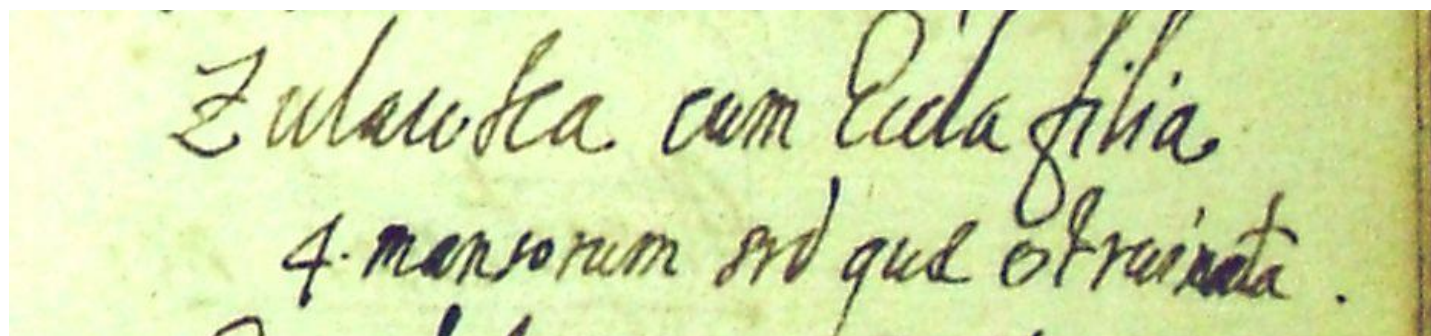 Zulawska cum Eiela filia
4. mansorum sed que est ruinata.